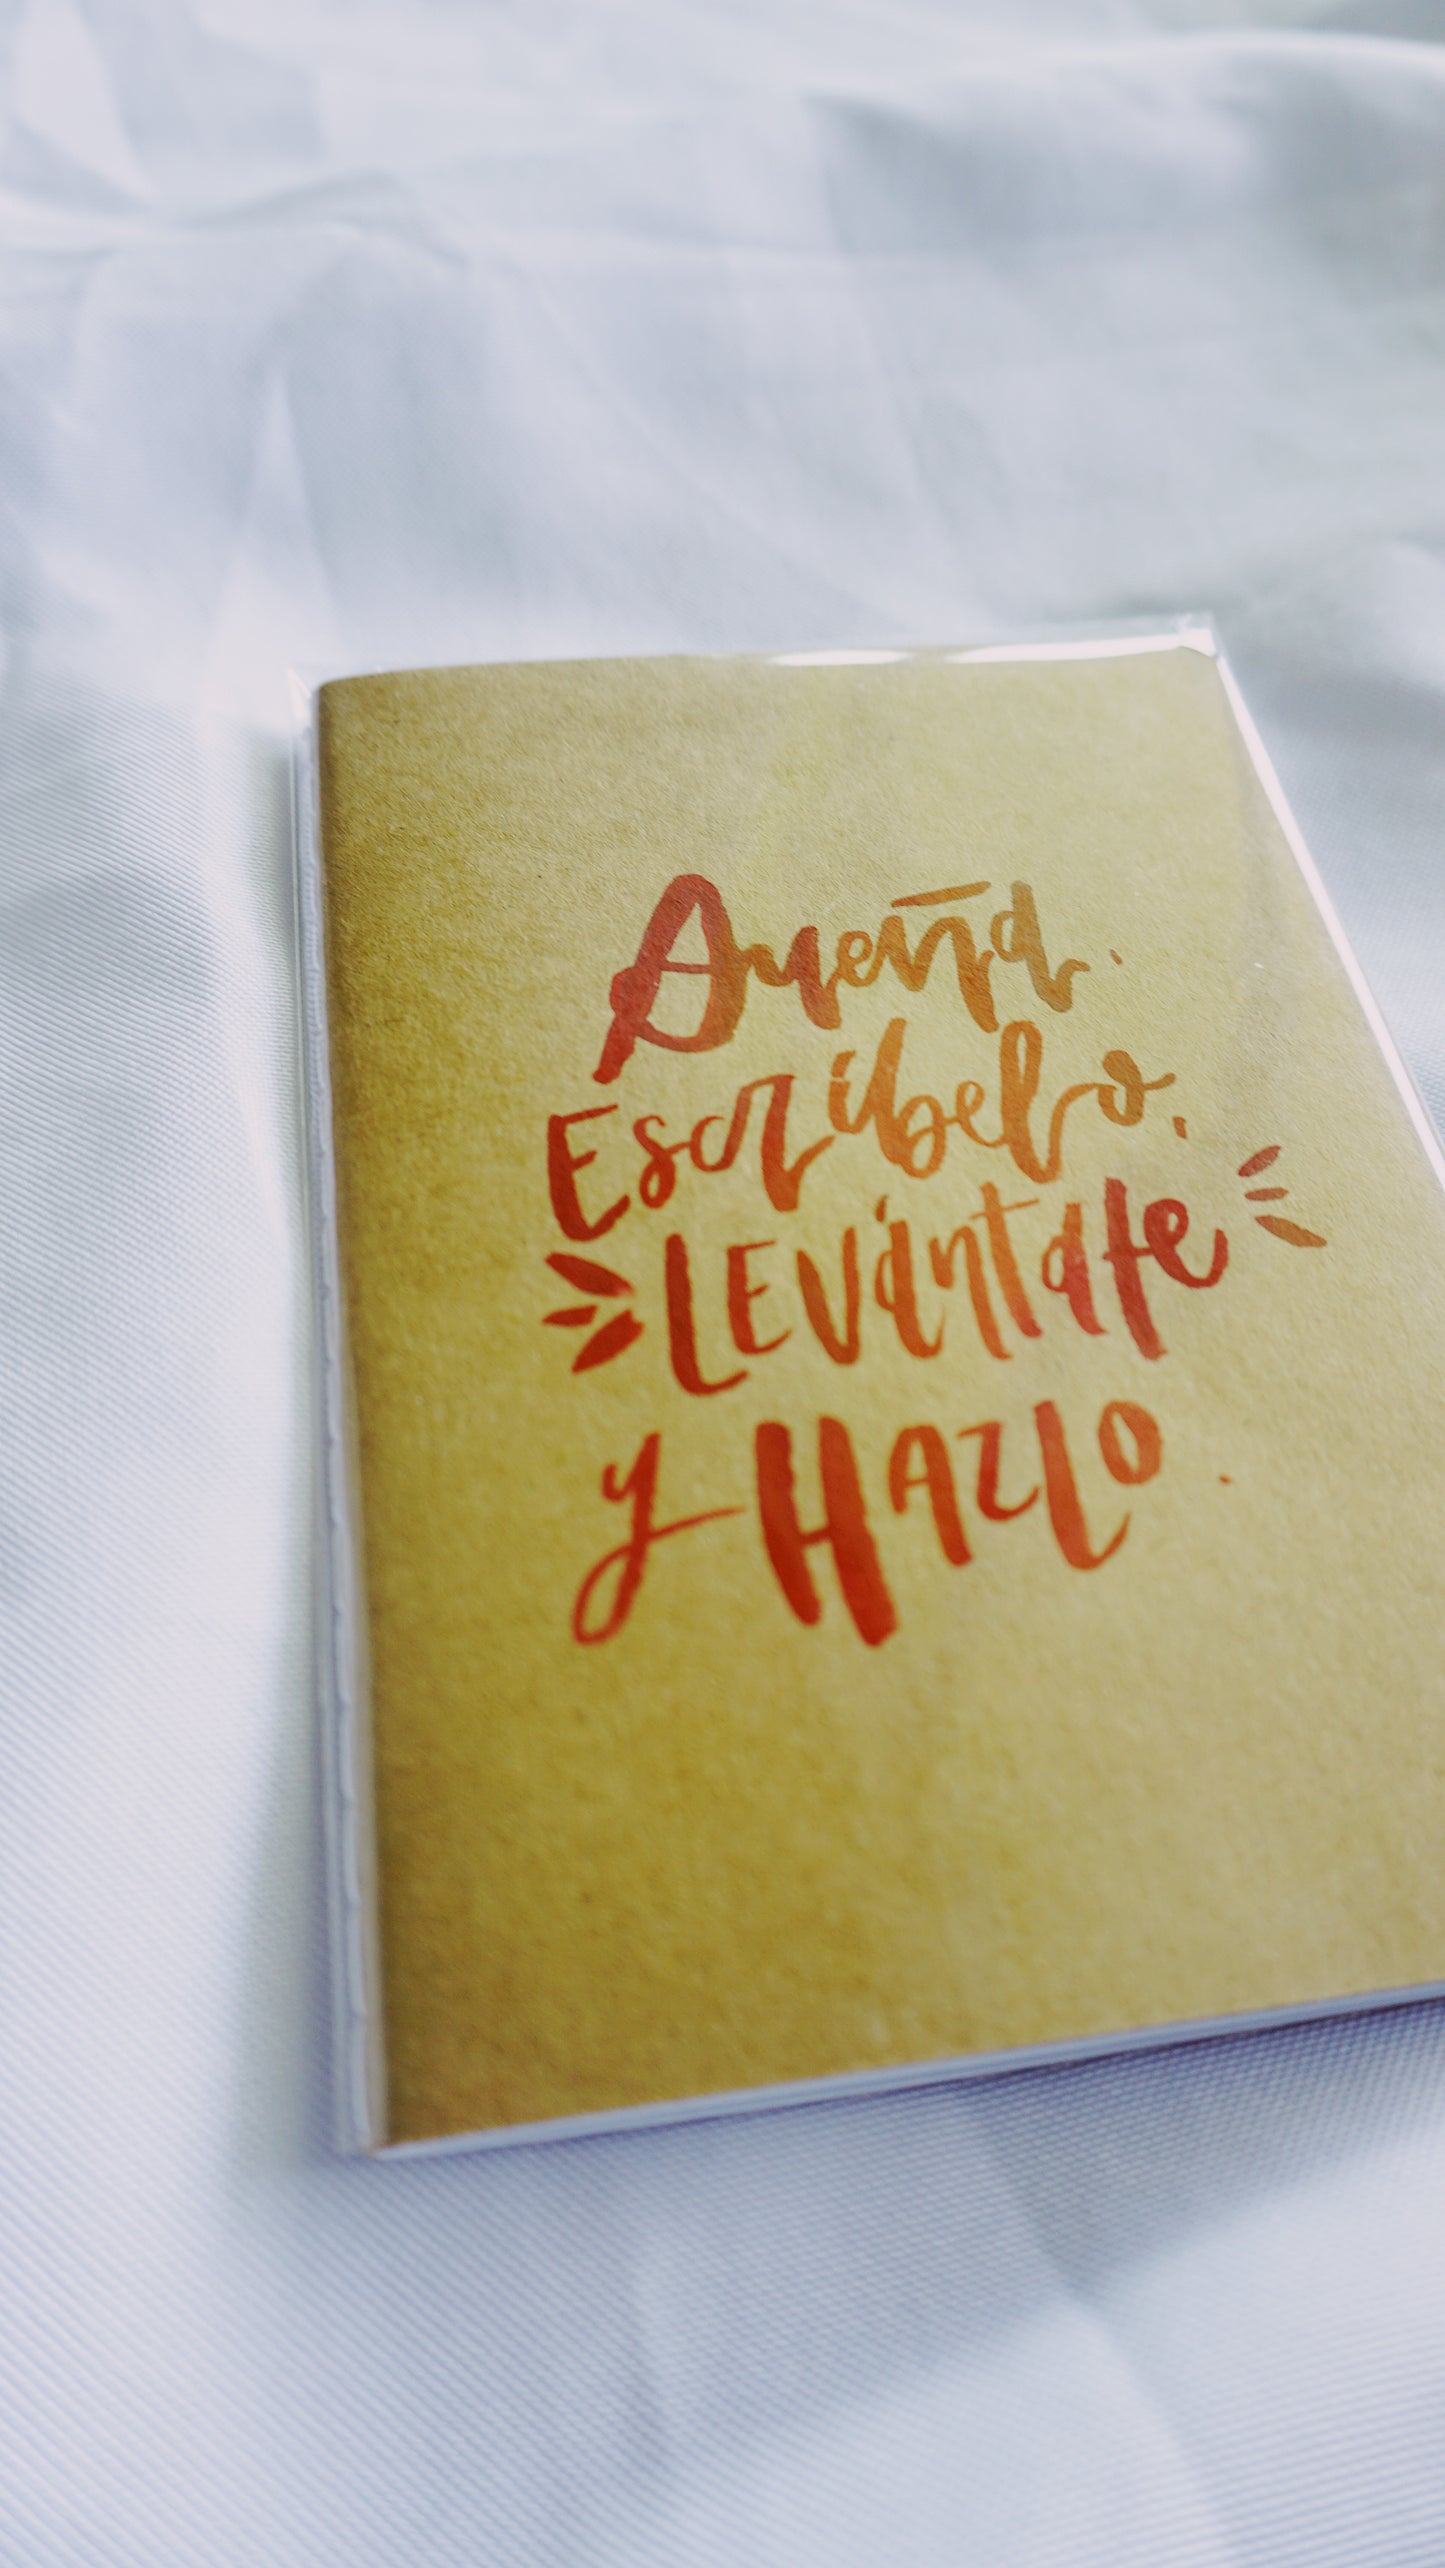 Sueña.
Escríbelo.
LEVántate
y HAZLO.